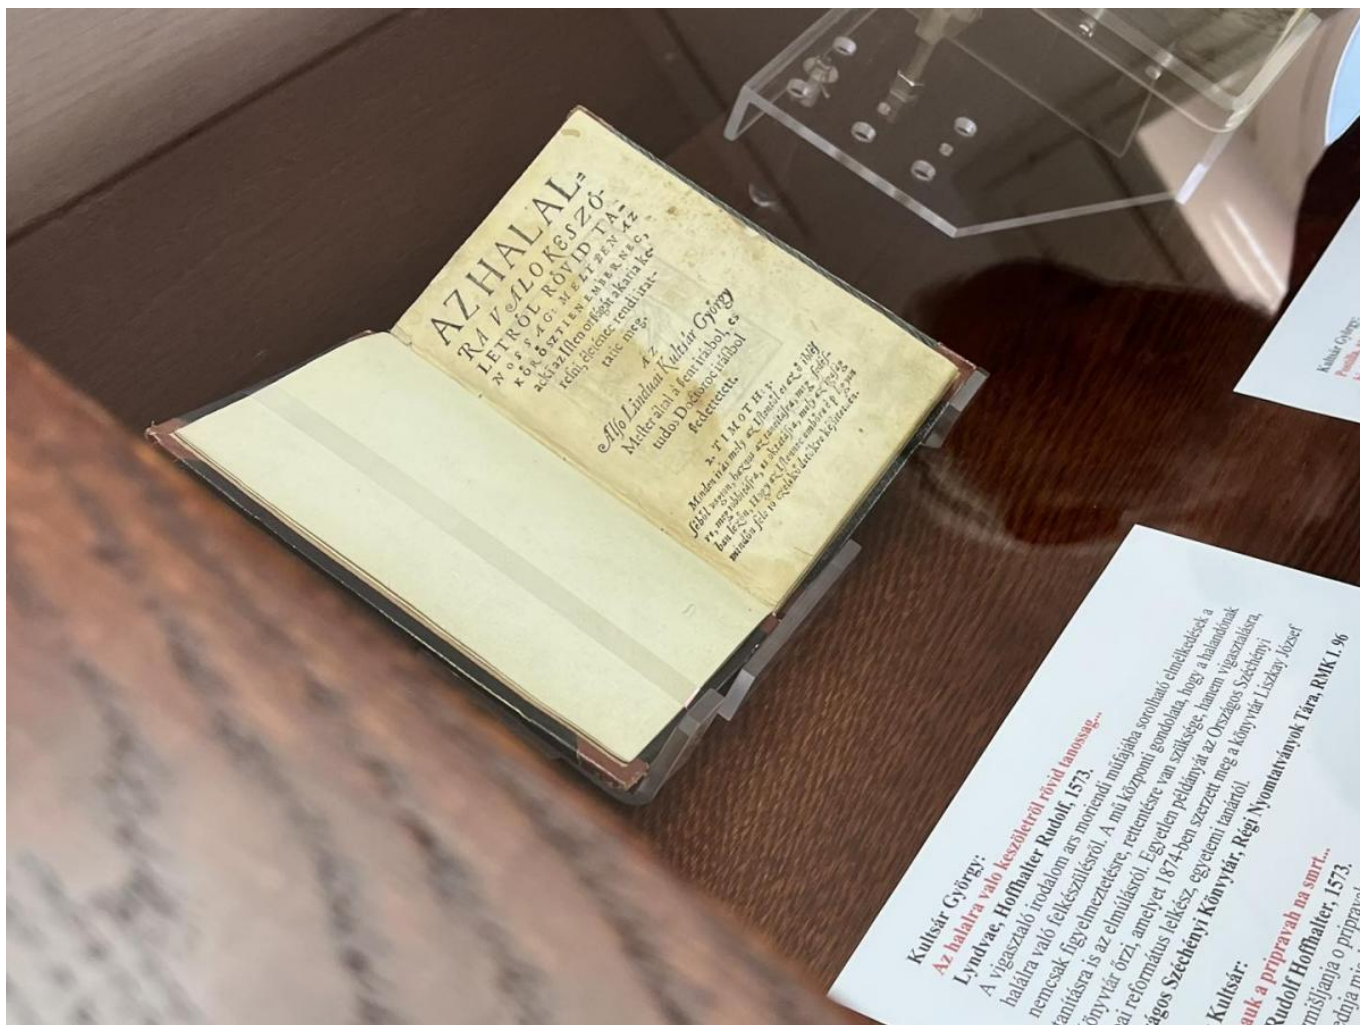 AZ HALAL=
RA VALO KESZÖ-
LETRÖL RÖVID TA=
NOSSAG: MELLYEN AZ
KÖRÖSZTIEN EMBERNEC,
acki az Isten orszagát akaria ke-
resni, életénec rendi irat-
tatic meg.
AZ
Alſo Linduai Kultſár György
Meſter által à ſent irásbol, es
tudos Doctoroc iráſibol
ſedettetett.
2. TIMOTH: 3.
Minden irás mely az Iſtentűl
mindön féle io czelekődetökre késſitetet.
Kultsár György:
Az halalra valo keszöletről rövid tanossag...
Lyndvae, Hoffhalter Rudolf, 1573.
A vigasztaló irodalom ars moriendi műfajába sorolható elmélkedések a
halálra való felkészülésről. A mű központi gondolata, hogy a halandónak
nemcsak figyelmeztetésre, rettentésre van szüksége, hanem vigasztalásra,
tanításra is az elmúlásról. Egyetlen példányát az Országos Széchényi
önyvtár őrzi, amelyet 1874-ben szerzett meg a könyvtár Liszkay József
ai református lelkész, egyetemi tanártól.
ágos Széchényi Könyvtár, Régi Nyomtatványok Tára, RMK I. 96
Kultsár:
auk a pripravah na smrt...
Rudolf Hoffhalter, 1573.
Kultsár György: